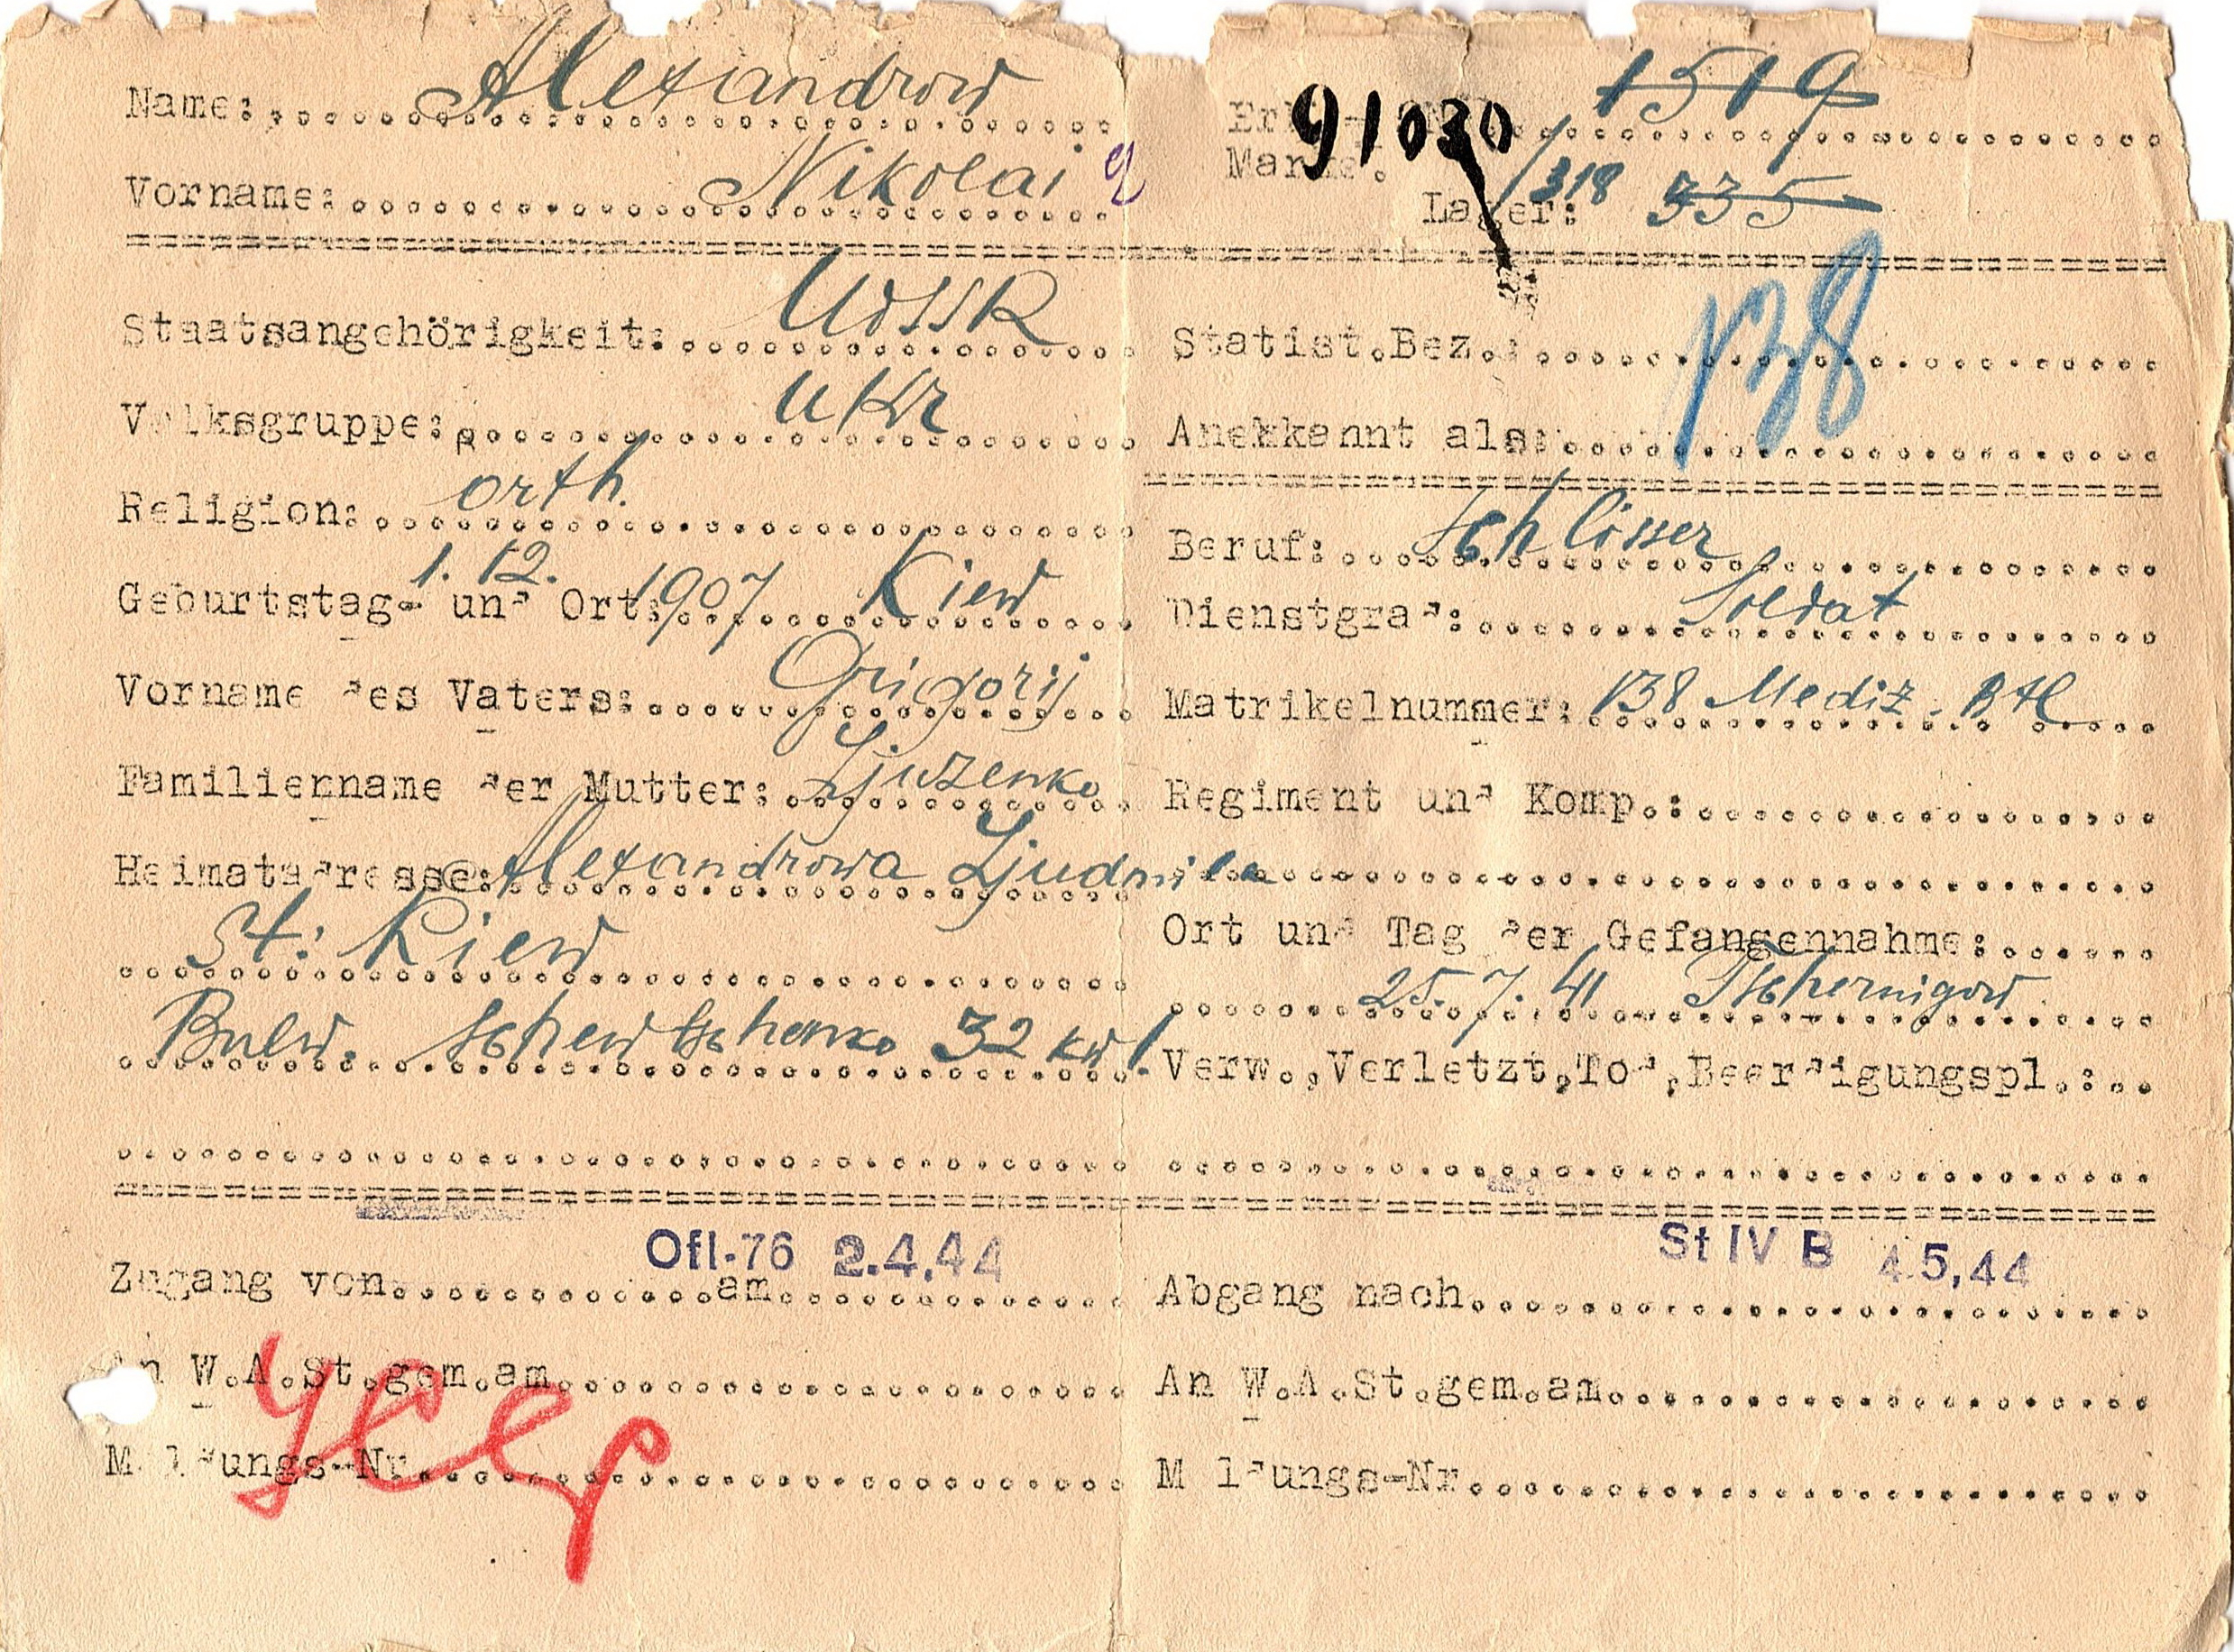 Name: Alexandrow
Vorname: Nikolai
91030 1519
Lager: 318 335
Staatsangehörigkeit: UdSSR
Volksgruppe: Ukr
Religion: orth.
Geburtstag- und Ort: 1.12. 1907 Kiew
Vorname des Vaters: Grigorij
Familienname der Mutter:
Heimatadresse: Alexandrowa Ljudmila
St: Kiew
Bulw. Schewtschenko 32 kw 1.
Statist.Bez.: 138
Anerkannt als:
Beruf: Schlosser
Dienstgrad: Soldat
Matrikelnummer: 138 Mediz. Btl
Regiment und Komp.:
Ort und Tag der Gefangennahme:
25.7.41 Tschernigow
Verw.,Verletzt,Tod,Beerdigungspl.:
Zugang von Ofl-76 am 2.4.44
An W.A.St.gem.am
Meldungs-Nr
Abgang nach St IV B 4.5.44
An W.A.St.gem.am
Meldungs-Nr